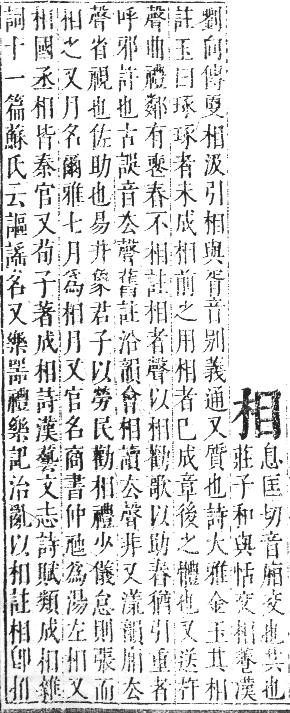 相
息匡切音廂交也共也
莊子和與恬交相養漢
劉向傳更相汲引相與胥音別義通又質也詩大雅金玉其相
註玉曰琢琢者未成相前之用相者已成章後之體也又送杵
聲曲禮鄰有喪舂不相註相者聲以相勸歌以助舂猶引重者
呼邪許也古誤音去聲舊註沿韻會相讀去聲非又漾韻廂去
聲省視也佐助也易井象君子以勞民勸相禮少儀怠則張而
相之又月名爾雅七月爲相月又官名商書仲虺爲湯左相又
相國丞相皆秦官又荀子著成相詩漢藝文志詩賦類成相雜
詞十一篇蘇氏云謳謠名又樂器禮樂記治亂以相註相卽拊